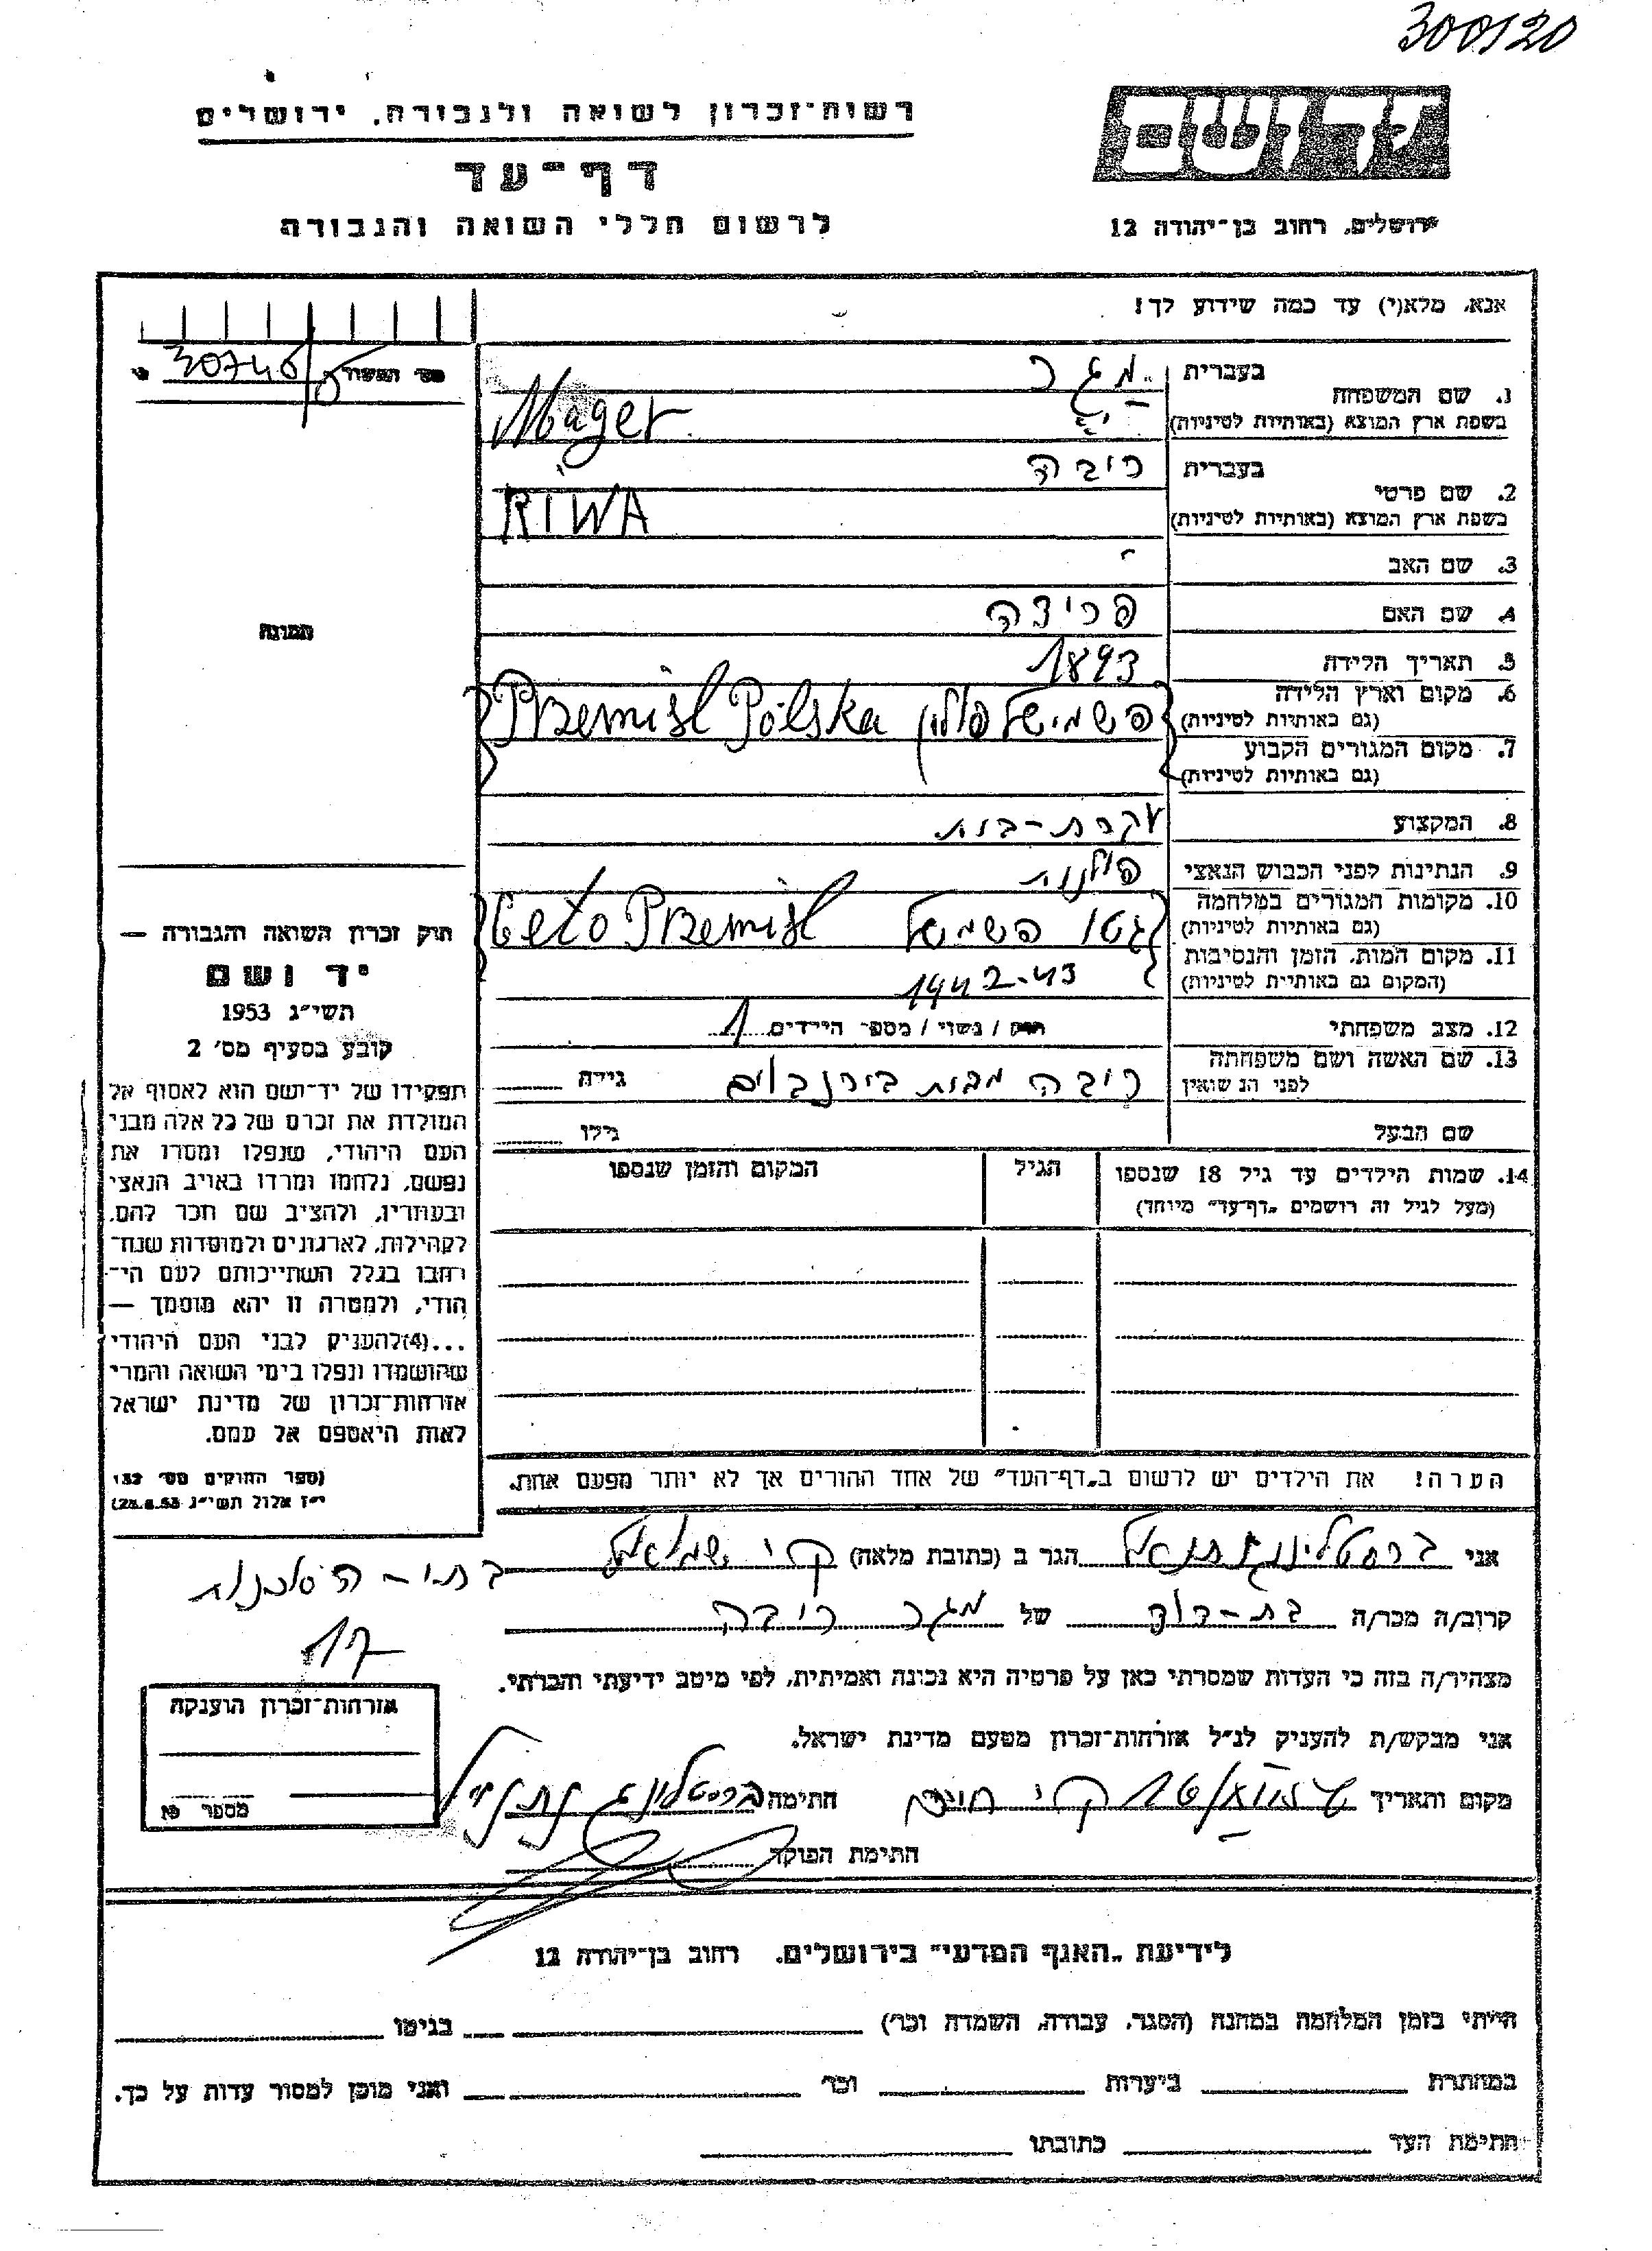 300120
רשות־זכרון לשואה ולגבורה, ירושלים
דף־עד
לרשום חללי השואה והגבורה
ידושם
ירושלים, רחוב בן־יהודה 12
אנא, מלא(י) עד כמה שידוע לך!
1. שם המשפחה
בעברית מגר
בשפת ארץ המוצא (באותיות לטיניות) Mager
2. שם פרטי
בעברית ריבה
בשפת ארץ המוצא (באותיות לטיניות) RIWA
3. שם האב
4. שם האם פרידה
5. תאריך הלידה 1893
6. מקום וארץ הלידה
(גם באותיות לטיניות) פשמישל פולין Przemisl Polska
7. מקום המגורים הקבוע
(גם באותיות לטיניות)
8. המקצוע עקרת-בית
9. הנתינות לפני הכבוש הנאצי פולנית
10. מקומות המגורים במלחמה
(גם באותיות לטיניות) גטו פשמישל Geto Przemisl
11. מקום המות, הזמן והנסיבות
(המקום גם באותיות לטיניות) 1942-43
12. מצב משפחתי רווק / נשוי / מספר הילדים 1
13. שם האשה ושם משפחתה
לפני הנשואין ריבה מבית בירנבוים גילה
שם הבעל גילו
14. שמות הילדים עד גיל 18 שנספו הגיל המקום והזמן שנספו
(מעל לגיל זה רושמים „דף־עד” מיוחד)
הערה! את הילדים יש לרשום ב„דף־העד” של אחד ההורים אך לא יותר מפעם אחת.
מס' 30746
תמונה
חוק זכרון השואה והגבורה —
יד ושם
תשי״ג 1953
קובע בסעיף מס׳ 2
תפקידו של יד־ושם הוא לאסוף אל
המולדת את זכרם של כל אלה מבני
העם היהודי, שנפלו ומסרו את
נפשם, נלחמו ומרדו באויב הנאצי
ובעוזריו, ולהציב שם וזכר להם,
לקהילות, לארגונים ולמוסדות שנח־
רבו בגלל השתייכותם לעם הי־
הודי, ולמטרה זו יהא מוסמך —
...(4)להעניק לבני העם היהודי
שהושמדו ונפלו בימי השואה והמרי
אזרחות־זכרון של מדינת ישראל
לאות היאספם אל עמם.
(ספר החוקים מס׳ 132
י״ז אלול תשי״ג 28.8.53)
אני ברסטלינג נתנאל הגר ב (כתובת מלאה) קרית שמואל
17
קרוב/ה מכר/ה בת-דוד של מגר ריבה
מצהיר/ה בזה כי העדות שמסרתי כאן על פרטיה היא נכונה ואמיתית, לפי מיטב ידיעתי והכרתי.
אני מבקש/ת להעניק לנ״ל אזרחות־זכרון מטעם מדינת ישראל.
מקום ותאריך חתימה ברסטלינג נתנאל
חתימת הפוקד
אזרחות־זכרון הוענקה
מספר
לידיעת „האגף המדעי” בירושלים, רחוב בן־יהודה 12
הייתי בזמן המלחמה במחנה (הסגר, עבודה, השמדה וכו׳) בגיטו
במחתרת ביערות וכו׳ ואני מוכן למסור עדות על כך.
חתימת העד כתובתו